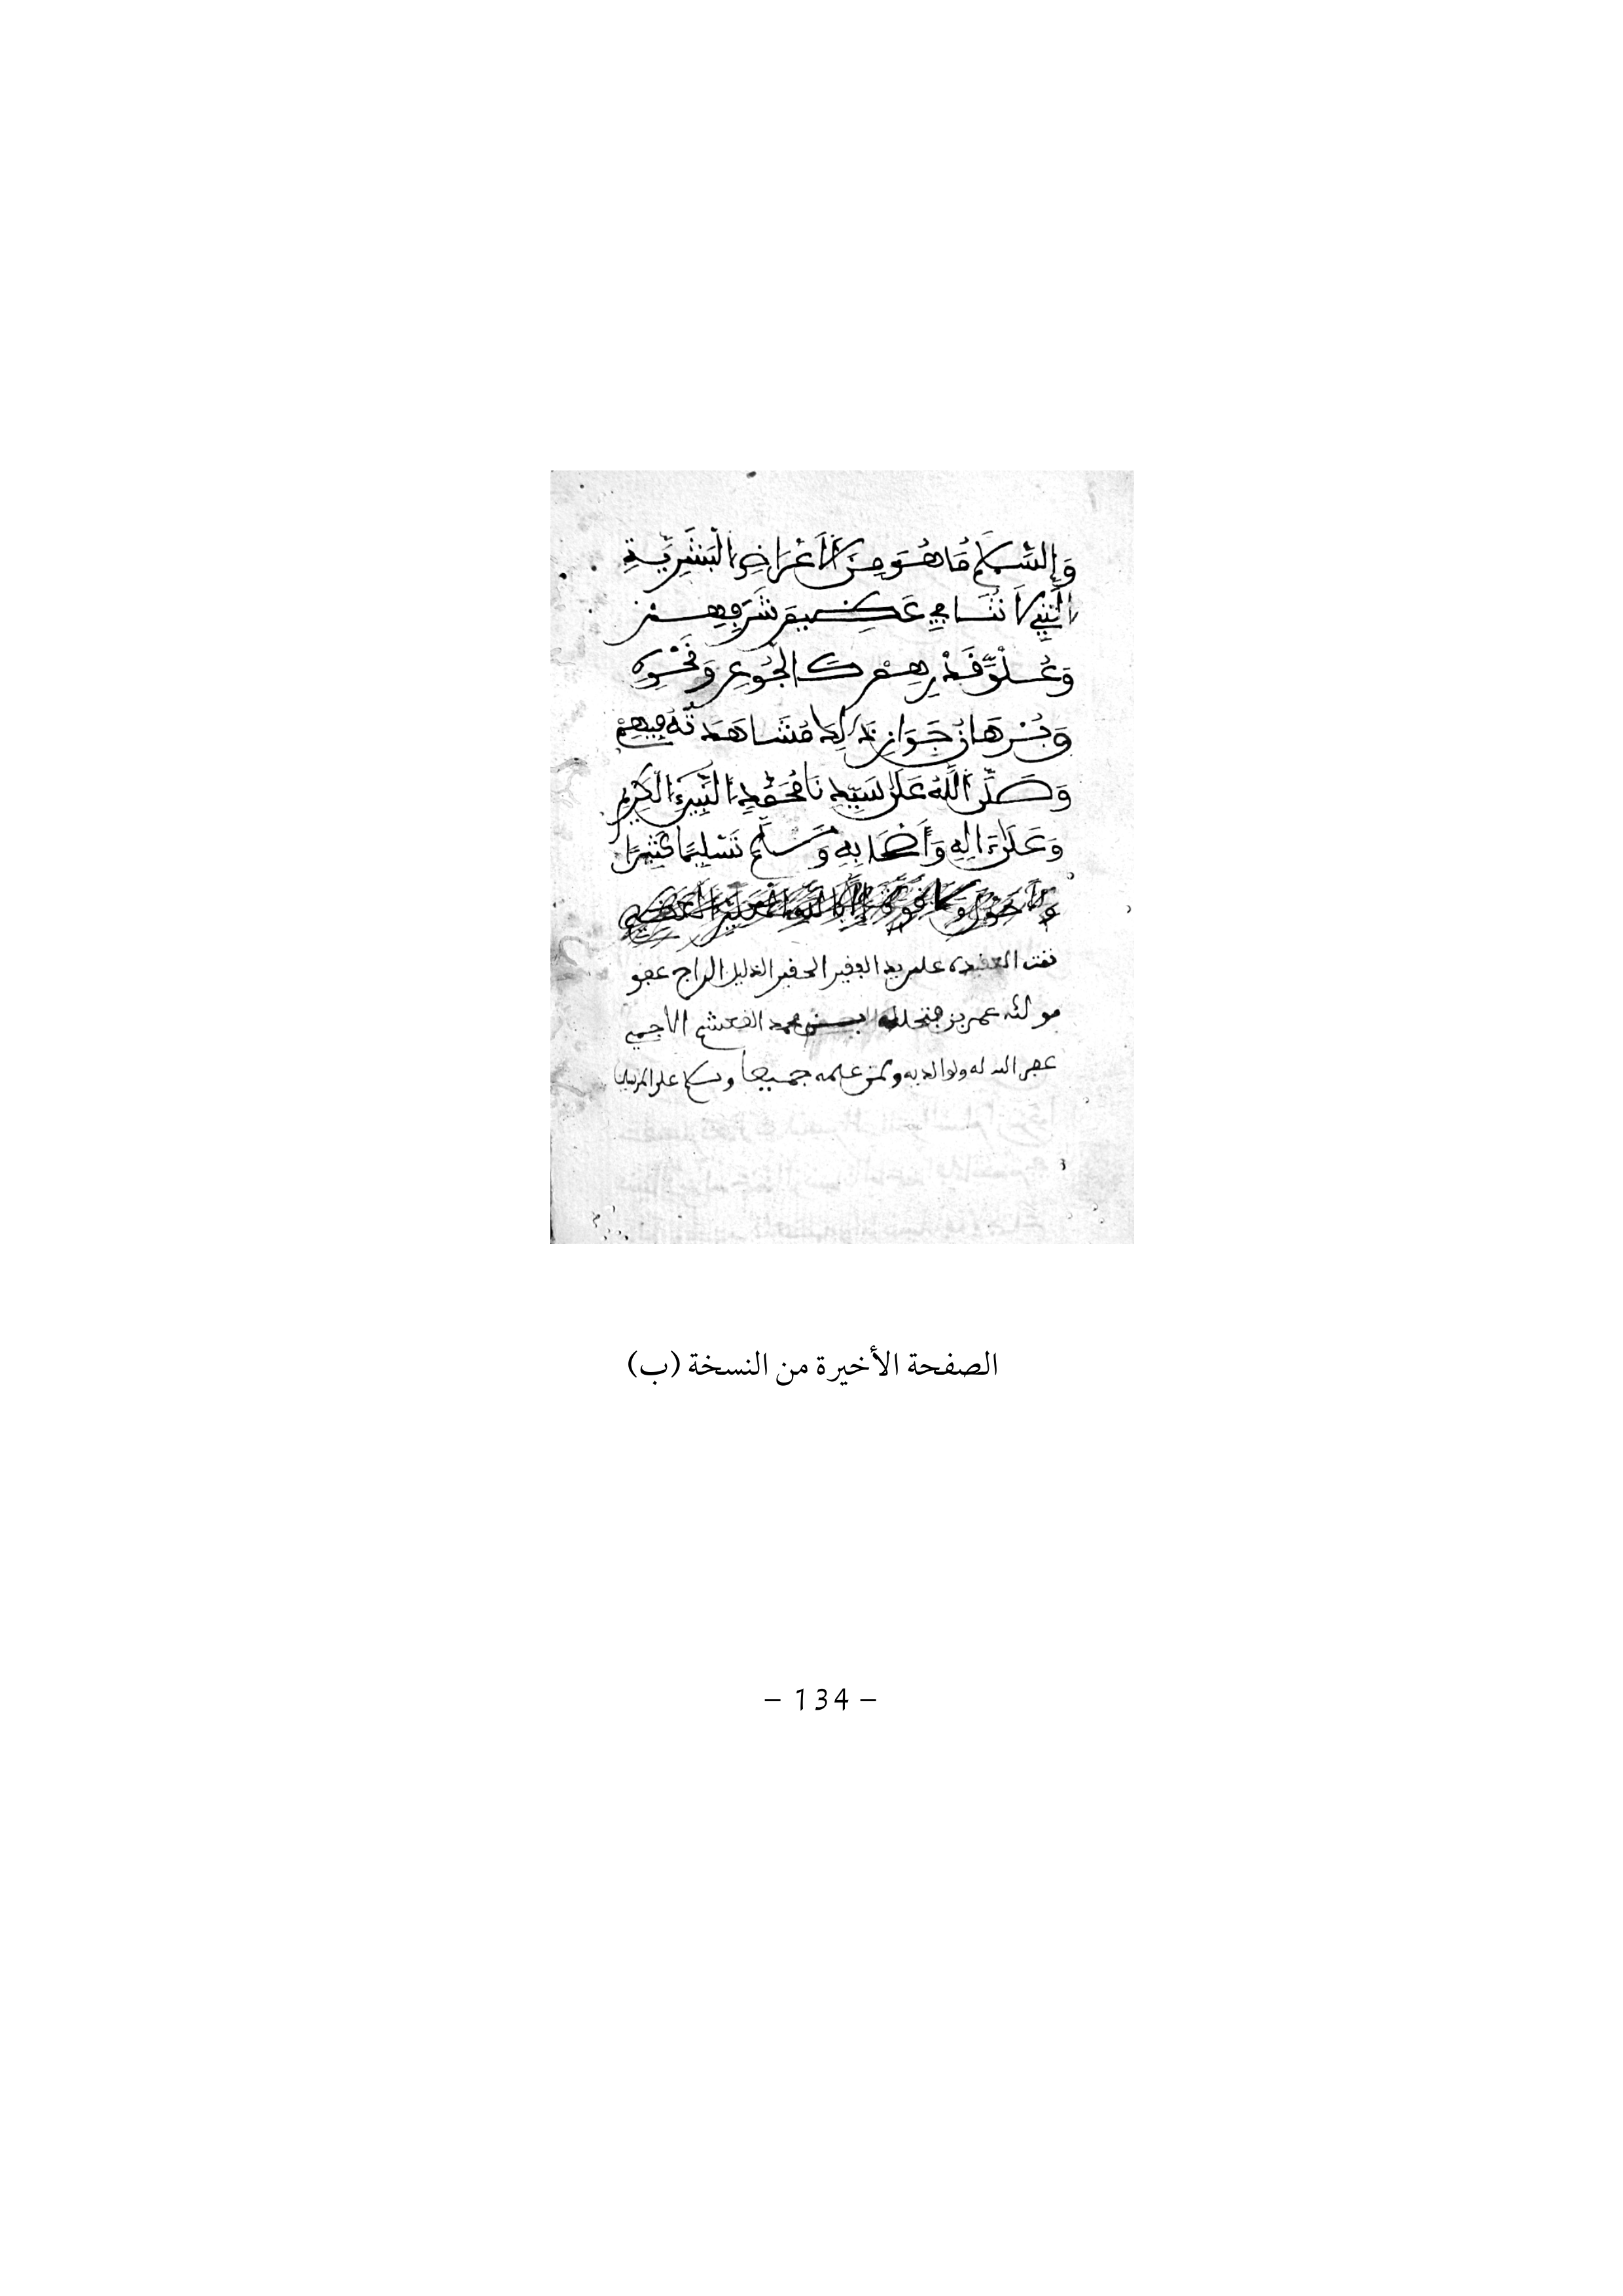 وَالسَّلَامُ مَا هُوَ مِنَ الْأَعْرَاضِ الْبَشَرِيَّةِ
الَّتِي لَا تُنَافِي عَظِيمَ شَرَفِهِمْ
وَعُلُوَّ قَدْرِهِمْ كَالْجُوعِ وَنَحْوِهِ
وَبُرْهَانُ جَوَازِ ذَلِكَ مُشَاهَدَتُهُ فِيهِمْ
وَصَلَّى اللَّهُ عَلَى سَيِّدِنَا مُحَمَّدٍ النَّبِيِّ الْكَرِيمِ
وَعَلَى ءَالِهِ وَأَصْحَابِهِ وَسَلَّمَ تَسْلِيمًا كَثِيرًا
وَلَا حَوْلَ وَلَا قُوَّةَ إِلَّا بِاللَّهِ الْعَلِيِّ الْعَظِيمِ
تمت العقيدة على يد الفقير الحقير الذليل الراج عفو
عمر بن محمد
غفر الله له ولوالديه ولمن علمه جميعا وسلام على المرسلين
الصفحة الأخيرة من النسخة (ب)
– 134 –